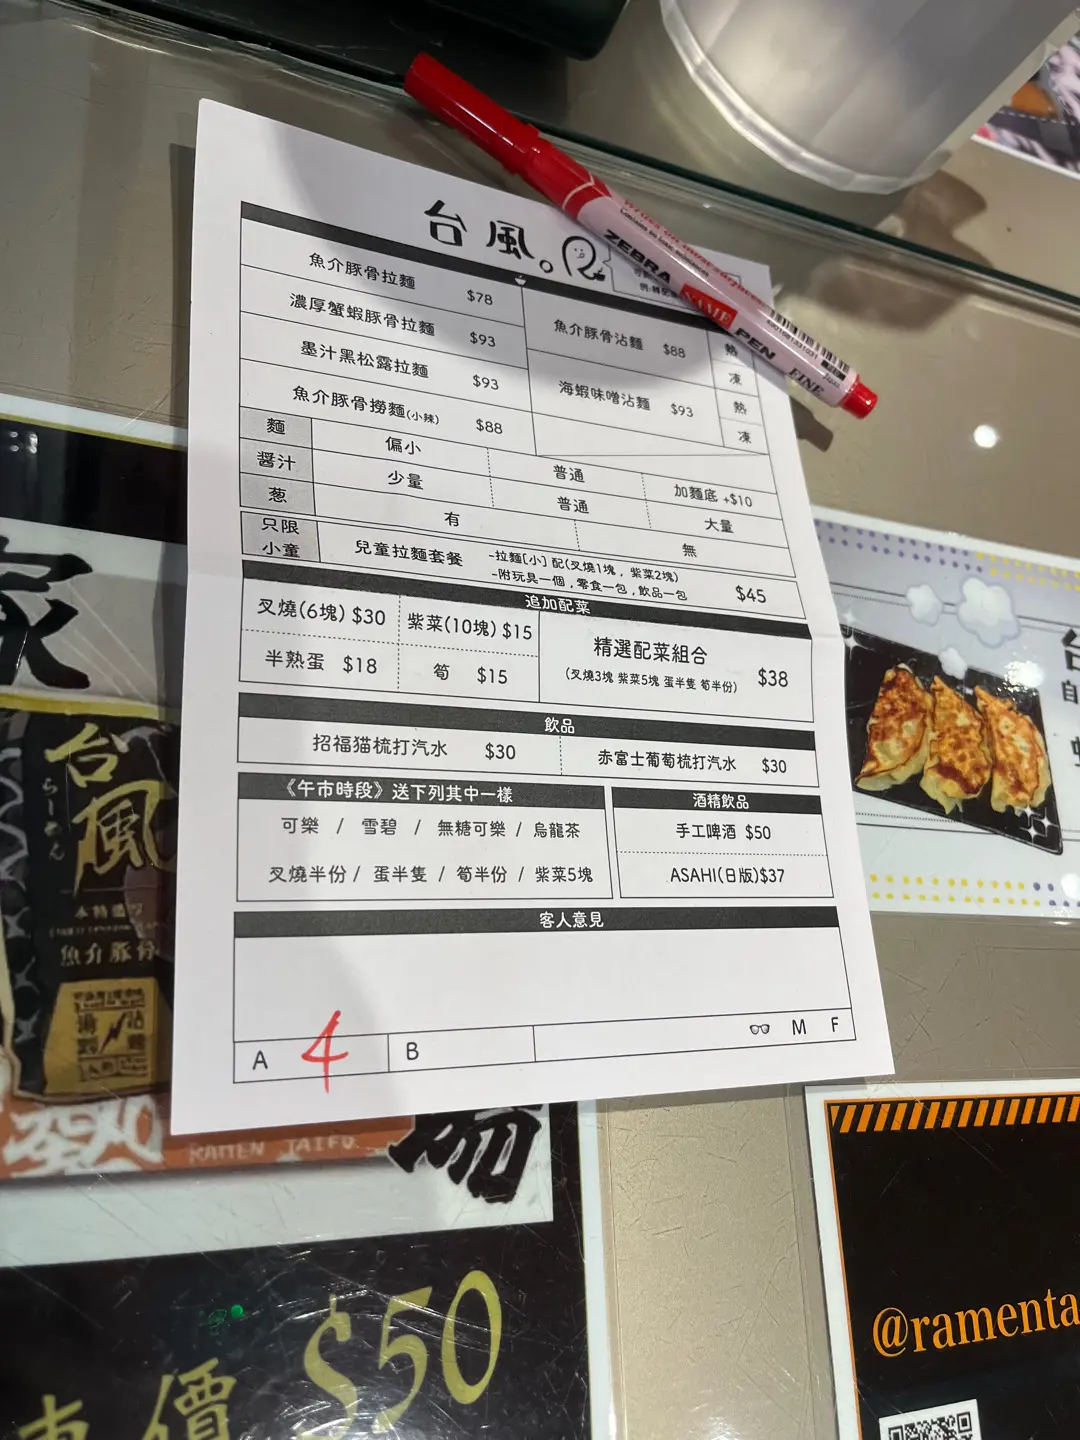 台風。
魚介豚骨拉麵 $78
濃厚蟹蝦豚骨拉麵 $93
墨汁黑松露拉麵 $93
魚介豚骨撈麵(小辣) $88
魚介豚骨沾麵 $88 熱 凍
海蝦味噌沾麵 $93 熱 凍
麵 偏小 普通 加麵底 +$10
醬汁 少量 普通 大量
葱 有 無
只限小童 兒童拉麵套餐 -拉麵[小] 配(叉燒1塊, 紫菜2塊) $45
-附玩具一個, 零食一包, 飲品一包
追加配菜
叉燒(6塊) $30 紫菜(10塊) $15
半熟蛋 $18 筍 $15
精選配菜組合 $38
(叉燒3塊 紫菜5塊 蛋半隻 筍半份)
飲品
招福猫梳打汽水 $30 赤富士葡萄梳打汽水 $30
《午市時段》送下列其中一樣
可樂 / 雪碧 / 無糖可樂 / 烏龍茶
叉燒半份 / 蛋半隻 / 筍半份 / 紫菜5塊
酒精飲品
手工啤酒 $50
ASAHI(日版)$37
客人意見
A 4 B M F
ZEBRA
NAME PEN
FINE
家
台風
らーめん
魚介豚骨
RAMEN TAIFU
$50
價
台
自
@ramenta